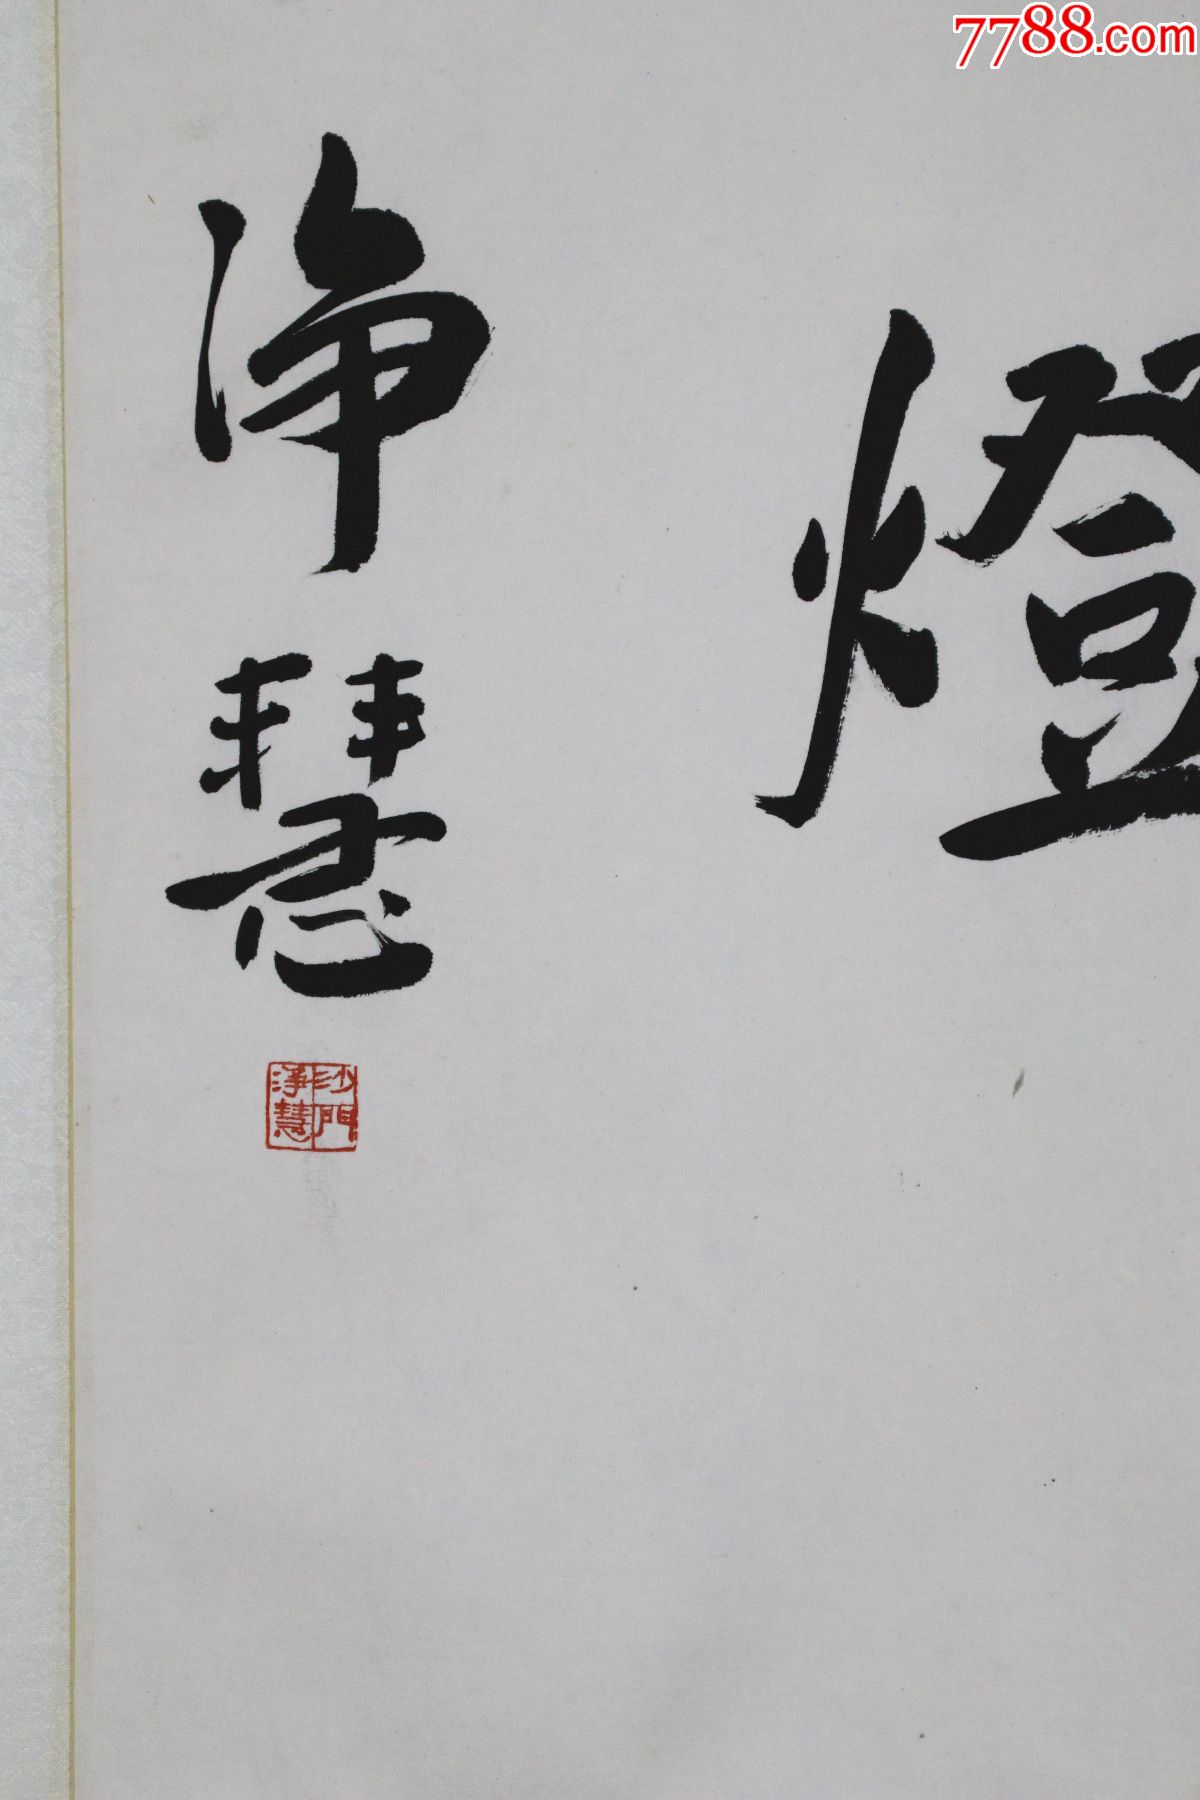 7788.com
燈
淨慧
沙門
淨慧